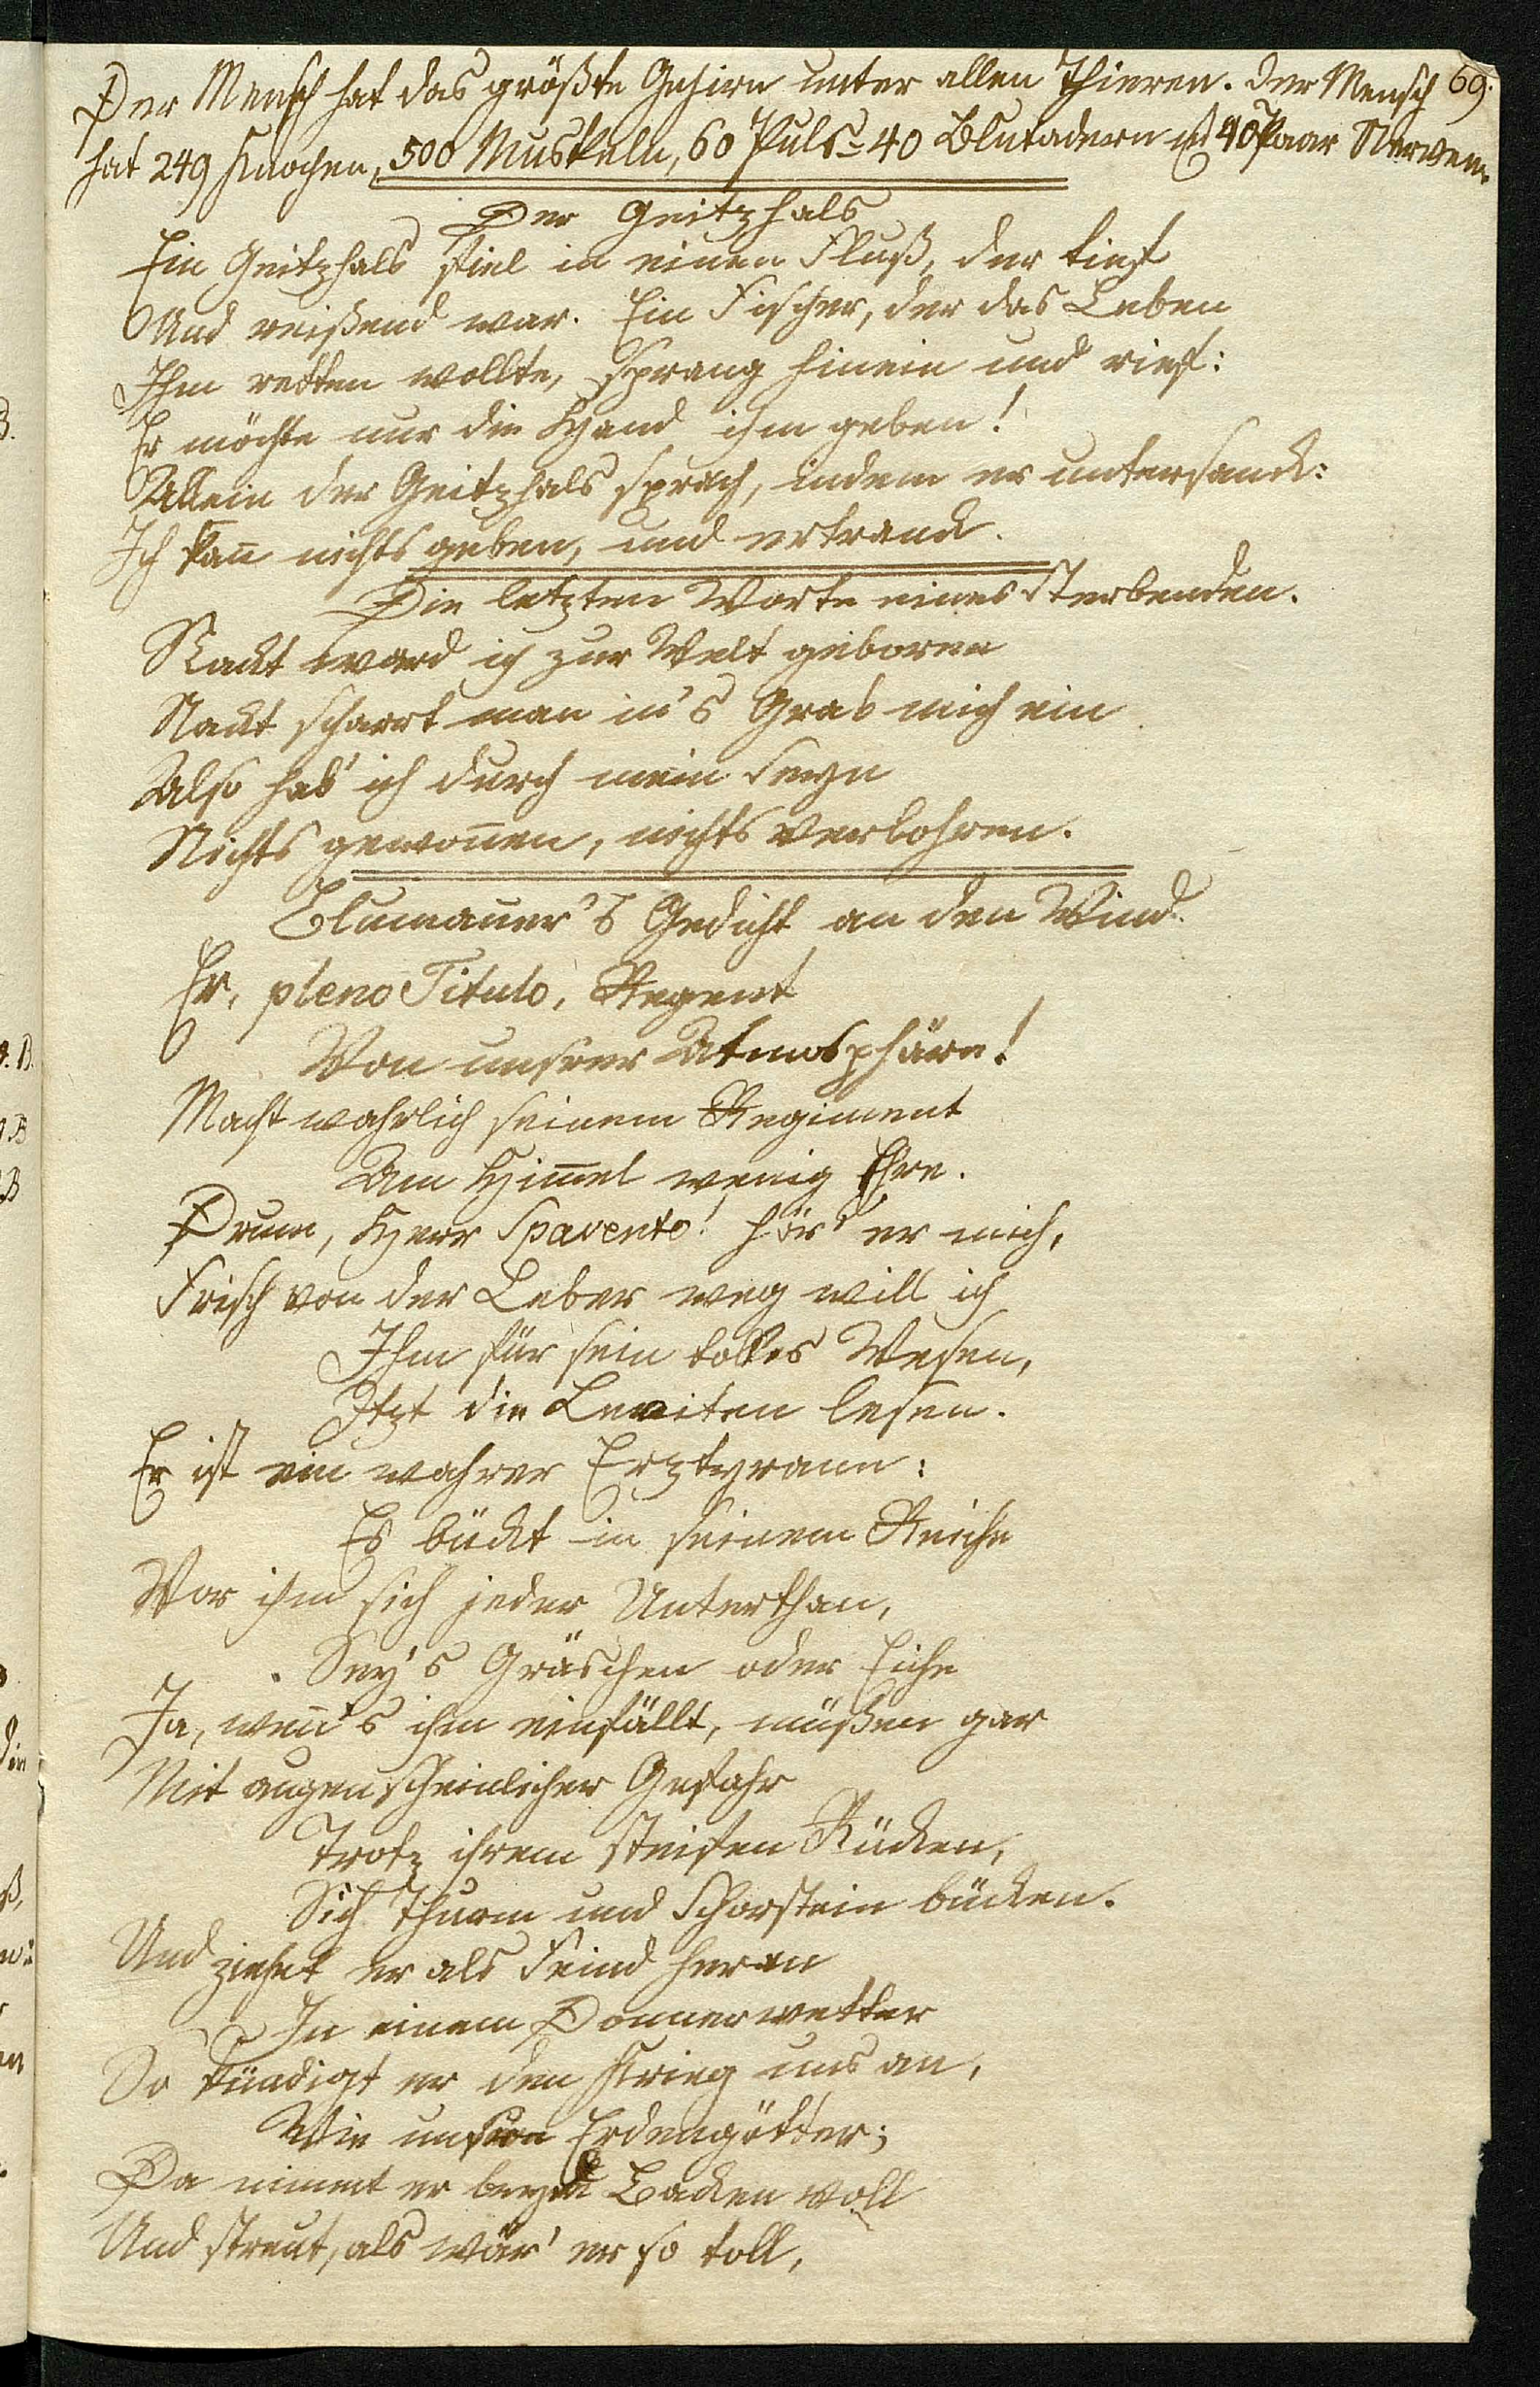 69.
Der Mensch hat das größte Gehirn unter allen Thieren. Der Mensch
hat 249 Knochen, 500 Muskeln, 60 Puls- 40 Blutadern u 40 Paar Nerven.
Der Geitzhals
Ein Geitzhals fiel in einen Fluß, der tief
Und reißend war. Ein Fischer, der das Leben
Ihm retten wollte, sprang hinein und rief:
Er möchte nur die Hand ihm geben!
Allein der Geitzhals sprach, indem er untersanck:
Ich kan̄ nichts geben, und ertranck.
Die letzten Worte eines Sterbenden.
Nackt ward ich zur Welt geboren
Nackt scharrt man in's Grab mich ein
Also hab' ich durch mein Seyn
Nichts gewon̄en, nichts verlohren.
Blumauer's Gedicht an den Wind.
Hr. pleno Titulo, Regent
Von unsrer Atmosphäre!
Macht wahrlich seinem Regiment
Am Him̄el wenig Ehre.
Drum, Herr Spavento! hör' er mich,
Frisch von der Leber weg will ich
Ihm für sein tolles Wesen,
Itzt die Leviten lesen.
Er ist ein wahrer Erztyrann:
Es bückt in seinem Reiche
Vor ihm sich jeder Unterthan,
Sey's Gräschen oder Eiche
Ja, wen̄'s ihm einfällt, müßen gar
Mit augenscheinlicher Gefahr
Trotz ihrem steifen Rücken,
Sich Thurm und Schorstein bücken.
Und ziehet er als Feind heran
In einem Donnerwetter
So kündigt er den Krieg uns an,
Wie unsre Erdengötter;
Da nimmt er beyde Backen voll
Und streut, als wär' er so toll,